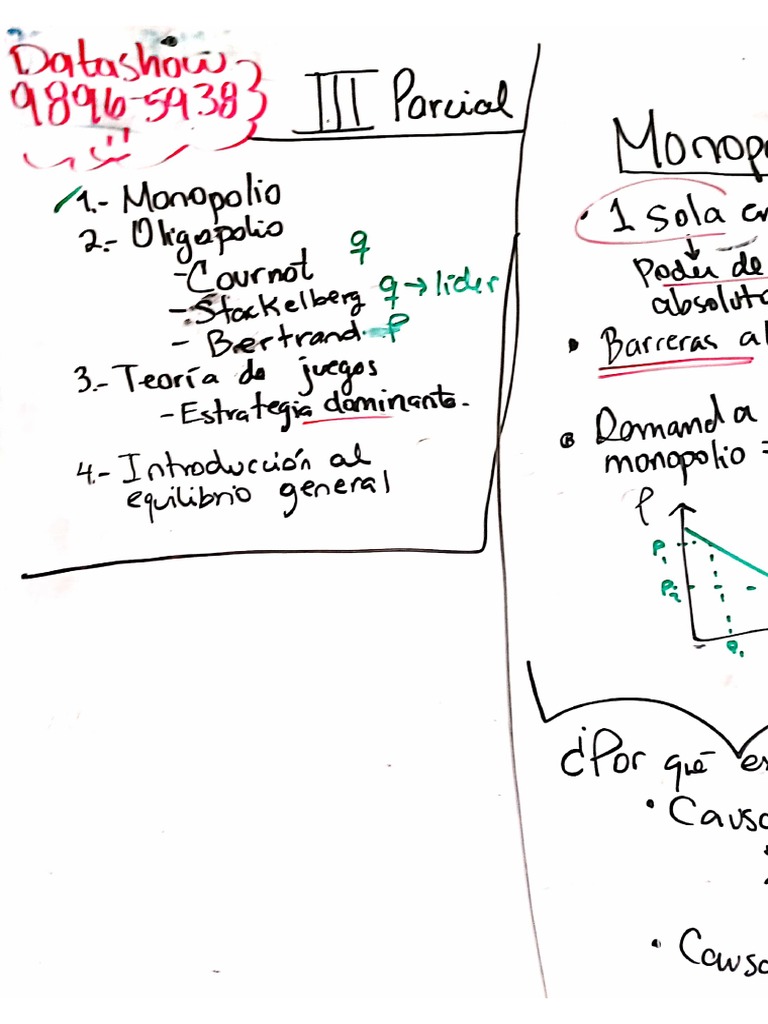 Datashow
9896-5938
III Parcial
1.- Monopolio
2.- Oligopolio
- Cournot q
- Stackelberg q → lider
- Bertrand P
3.- Teoría de juegos
- Estrategia dominante.
4.- Introducción al
equilibrio general
Monop
• 1 Sola em
Poder de
absoluto
• Barreras al
• Demanda
monopolio =
P
P1
P2
Q1
¿Por qué es
• Causa
• Causa